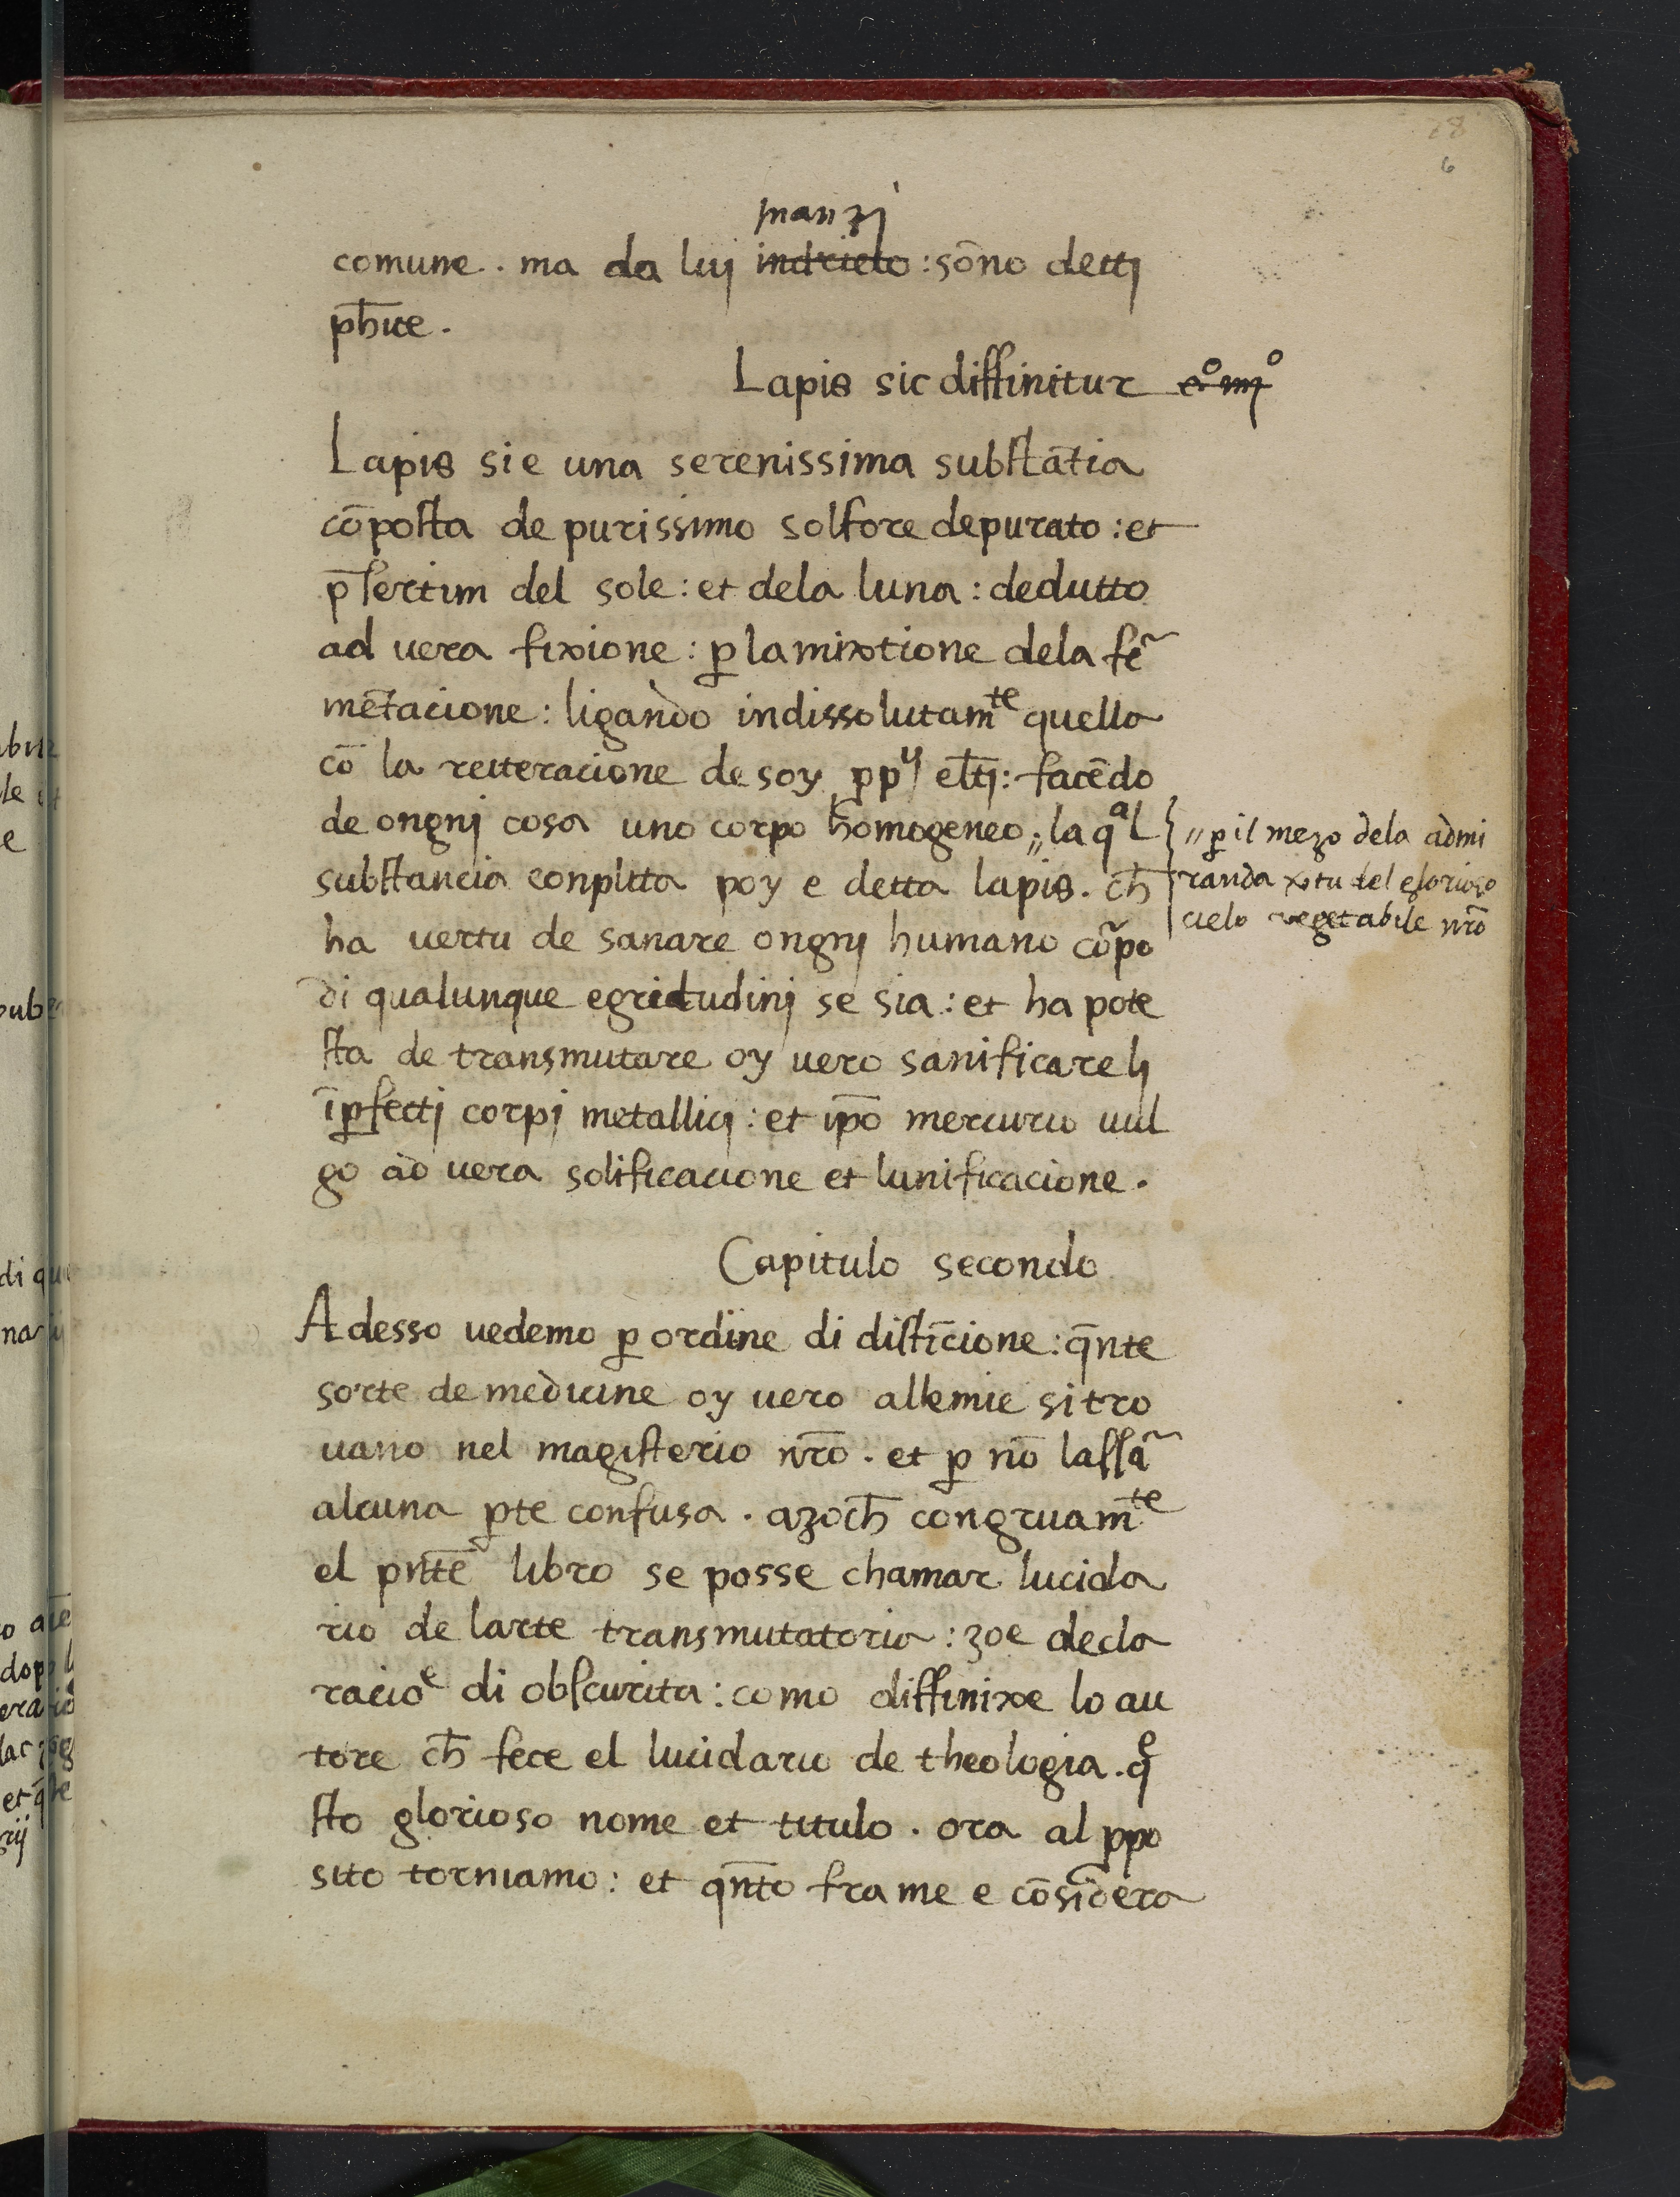 78
6
manzj
comune . ma da luj indrieto : sōno dettj
ph̄ice .
Lapis sic diffinitur
Lapis sie una serenissima substātia
cōposta de purissimo solfore depurato : et
p̄sertim del sole : et dela luna : dedutto
ad uera fixione : ꝑ la mixtione dela fe᷉
mētacione : ligando indissolutamte quello
cō la reiteracione de soy facēdo
de ongnj cosa uno corpo homogeneo „ la qᵃl
„ ꝑ il mezo dela admi
randa xtu del glorioso
cielo vegetabile nr̄o
substancia conplita poy e detta lapis . ch̄
ha uertu de sanare ongnj humano co᷉po
di qualunque egritudinj se sia : et ha pote
sta de transmutare oy uero sanificare lj
īꝑfectj corpj metallicj : et ip̄o mercurio uul
go ad uera solificacione et lunificacione .
Capitulo secondo
Adesso uedemo ꝑ ordine di distīcione : q̄nte
sorte de medicine oy uero alkemie si tro
uano nel magisterio nr̄o . et ꝑ nō lassa᷉
alcuna ꝑte confusa . azoch̄ congruamte
el pn̄te libro se posse chamar lucida
rio de larte transmutatoria : zoe decla
racioē di obscurita : como diffinixe lo au
tore ch̄ fece el lucidario de theologia . qe
sto glorioso nome et titulo . ora al ꝓpo
sito torniamo : et qn̄to fra me e cōsidera